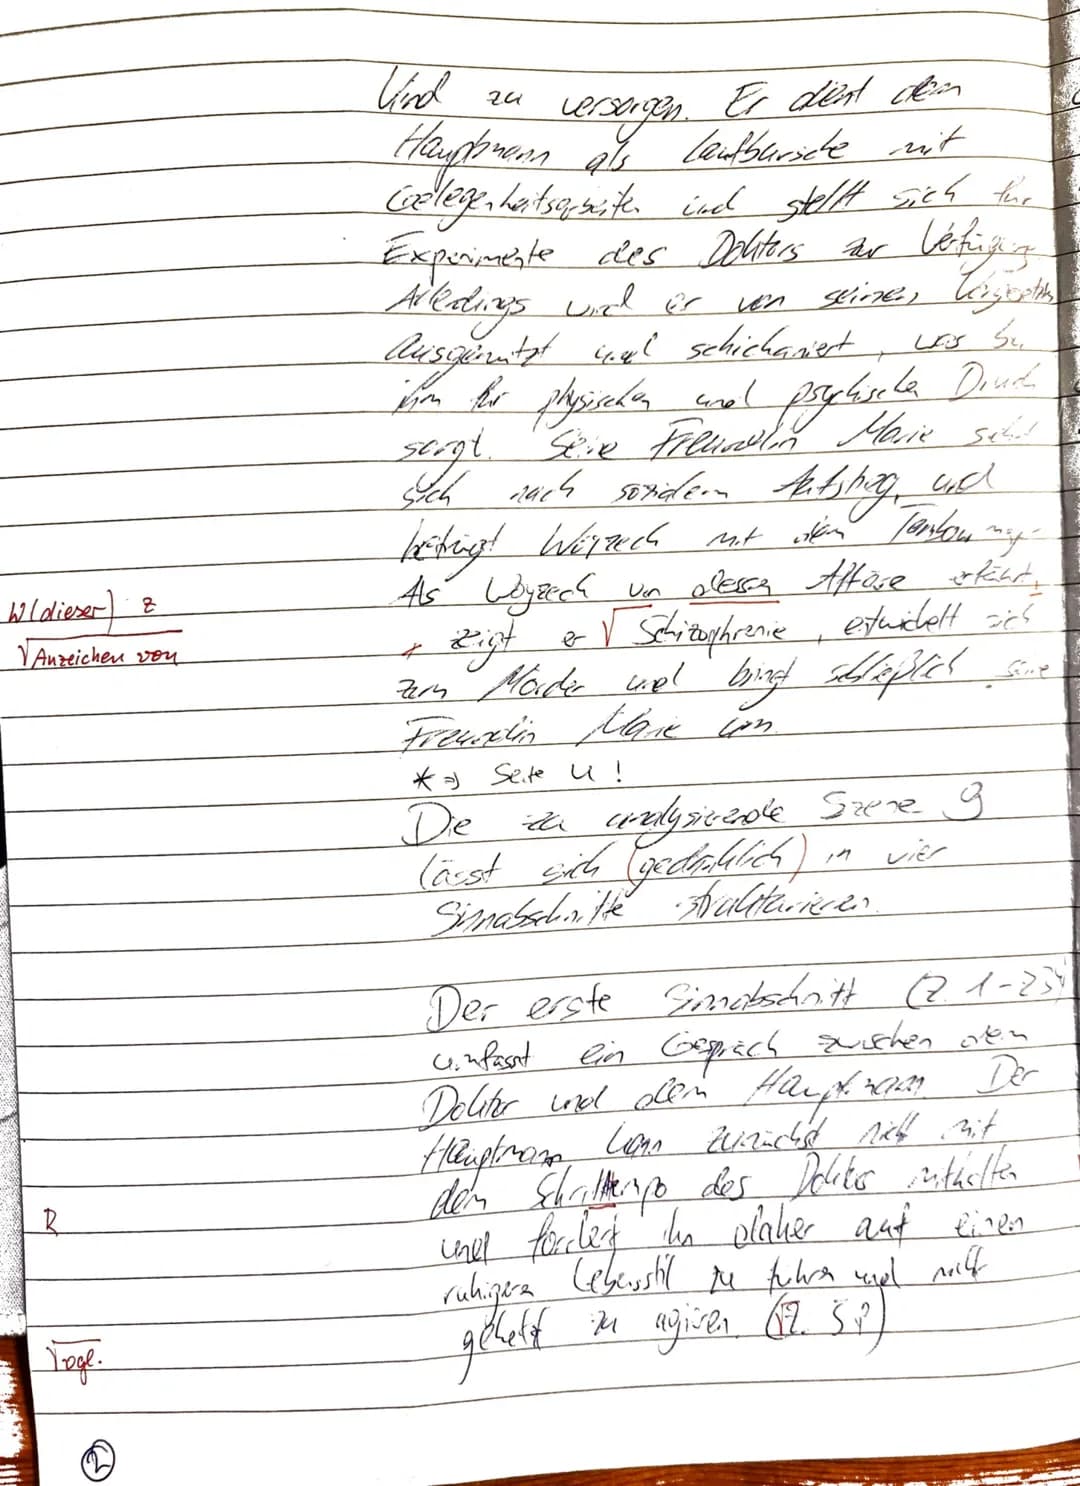 Kind zu versorgen. Er dient dem
Hauptmann als Laufbursche mit
Gelegenheitsarbeiten und stellt sich für
Experimente des Doktors zur Verfügung
Allerdings wird er von seinen Vorgesetzten
ausgenutzt und schickaniert, was bei
ihm für physischen und psychischen Druck
sorgt. Seine Freundin Marie sehnt
sich nach sozialem Aufstieg, und
betrügt Woyzeck mit dem Tambourmaj-
Als Woyzeck von dessen Affäre erfährt,
W(dieser) z
zeigt er √ Schizophrenie, entwickelt sich
√ Anzeichen von
zum Mörder und bringt schließlich seine
Freundin Marie um.
* => Seite 4!
Die zu analysierende Szene 9
lässt sich (gedanklich) in vier
Sinnabschnitte strukturieren.
Der erste Sinnabschnitt (Z. 1-23)
umfasst ein Gespräch zwischen dem
Doktor und dem Hauptmann. Der
Hauptmann kann zunächst nicht mit
dem Schritttempo des Doktors mithalten
R
und fordert ihn daher auf einen
ruhigeren Lebensstil zu führen und nicht
gehetzt zu agieren. (√Z. 5?)
√vgl.
2